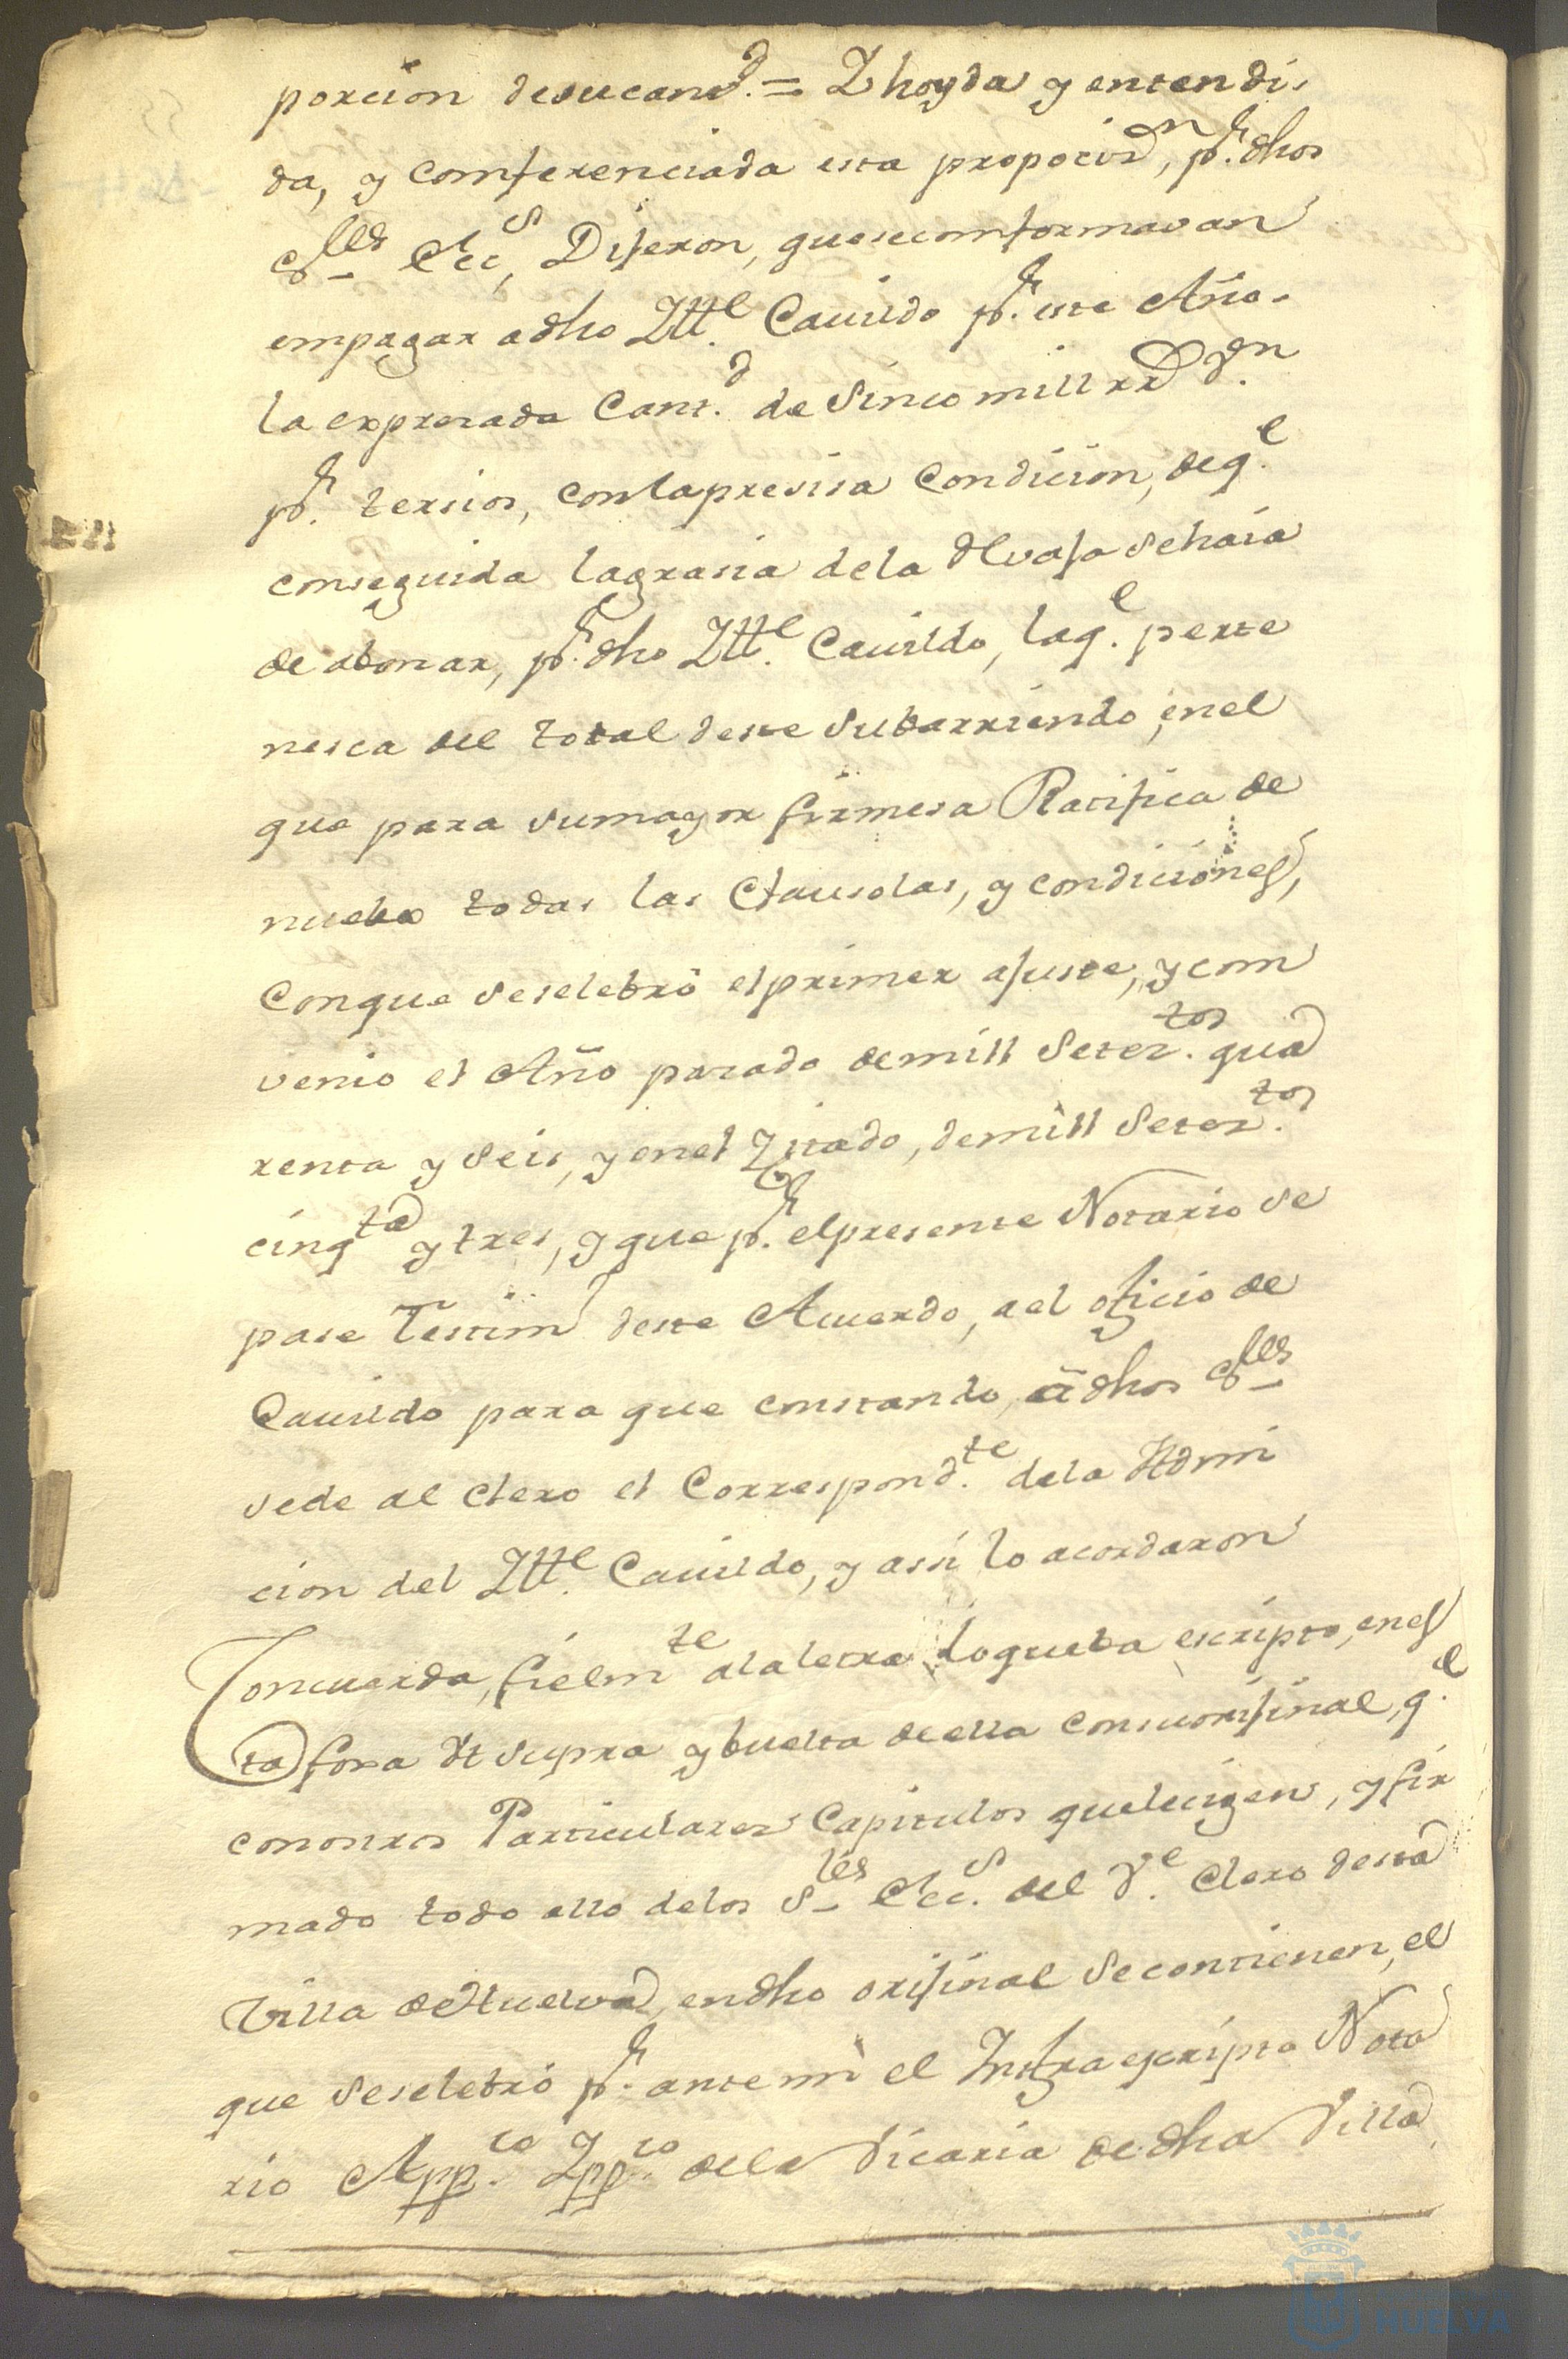 porcion desucantd. = Y hoyda y entendi-
da, y comferenciada esta propocion, pr. dhos
Sres Ecc.s, Dijeron, quese comformavan
empagar a dho Ill.e Cauildo pr. este Año.
la expresada Cant.d de Sinco mill rr.s Vn
pr. tersios, conla presisa Condicion, de q.e
conseguida la grasia dela Rvaja se haia
de abonar, pr. dho Ill.e Cauildo, la q.e perte
nesca del total deste Subarriendo, en el
que para sumayor firmesa Ratifica de
nuebo todas las Clausolas, y condiciones,
Conque se selebró el primer ajuste, y com
venio el Año pasado de mill Setez.tos qua
renta y Seis, y enel Zitado, demill Setez.tos
cinq.ta y tres, y que pr. el presente Notario se
pase Testim.o deste Acuerdo, a el oficio de
Cauildo para que constando, â dhos Sres
se de al Clero el Correspond.te dela Admi
cion del Ill.e Cauildo, y assi lo acordaron
Concuerda, fielm.te ala letra lo que ba escripto, en es
ta foxa Vt supra y buelta de ella consu orijinal, q.e
con otros Particulares Capitulos quele sigen, y fir
mado todo ello delos S.res Ecc.s del V.e Clero desta
Villa de Huelva, en dho orijinal se contienen, el
que se selebró pr. ante mi el Infraescripto Nota
rio App.co Ypp.co dela Vicaria de dha Villa
HUELVA